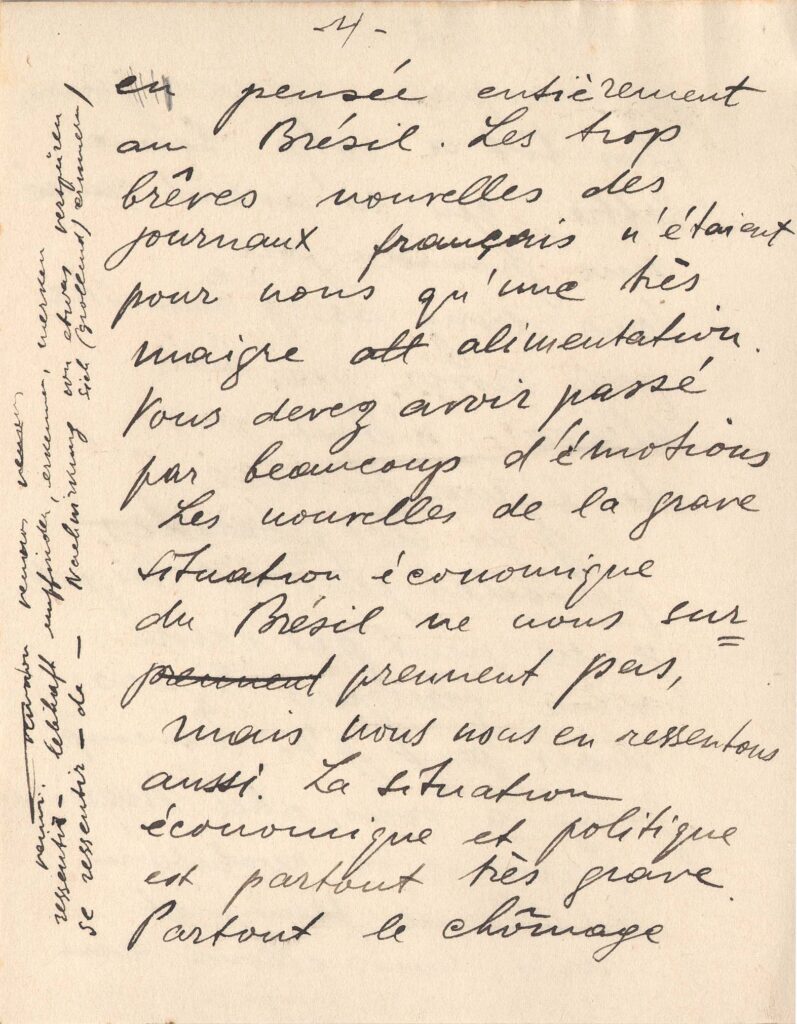 - 4 -
en pensée entièrement
au Brésil. Les trop
brêves nouvelles des
journaux français n'étaient
pour nous qu'une très
maigre alt alimentation.
Vous devez avoir passé
par beaucoup d'émotions
Les nouvelles de la grave
situation économique
du Brésil ne nous sur
prennent prennent pas,
mais nous nous en ressentons
aussi. La situation
économique et politique
est partout très grave.
Partout le chômage
venir. venons
ressentir - lebhaft empfinden, erkennen, merken
se ressentir - de - Nachwirkung von etwas verspüren
sich (grollend) erinnern